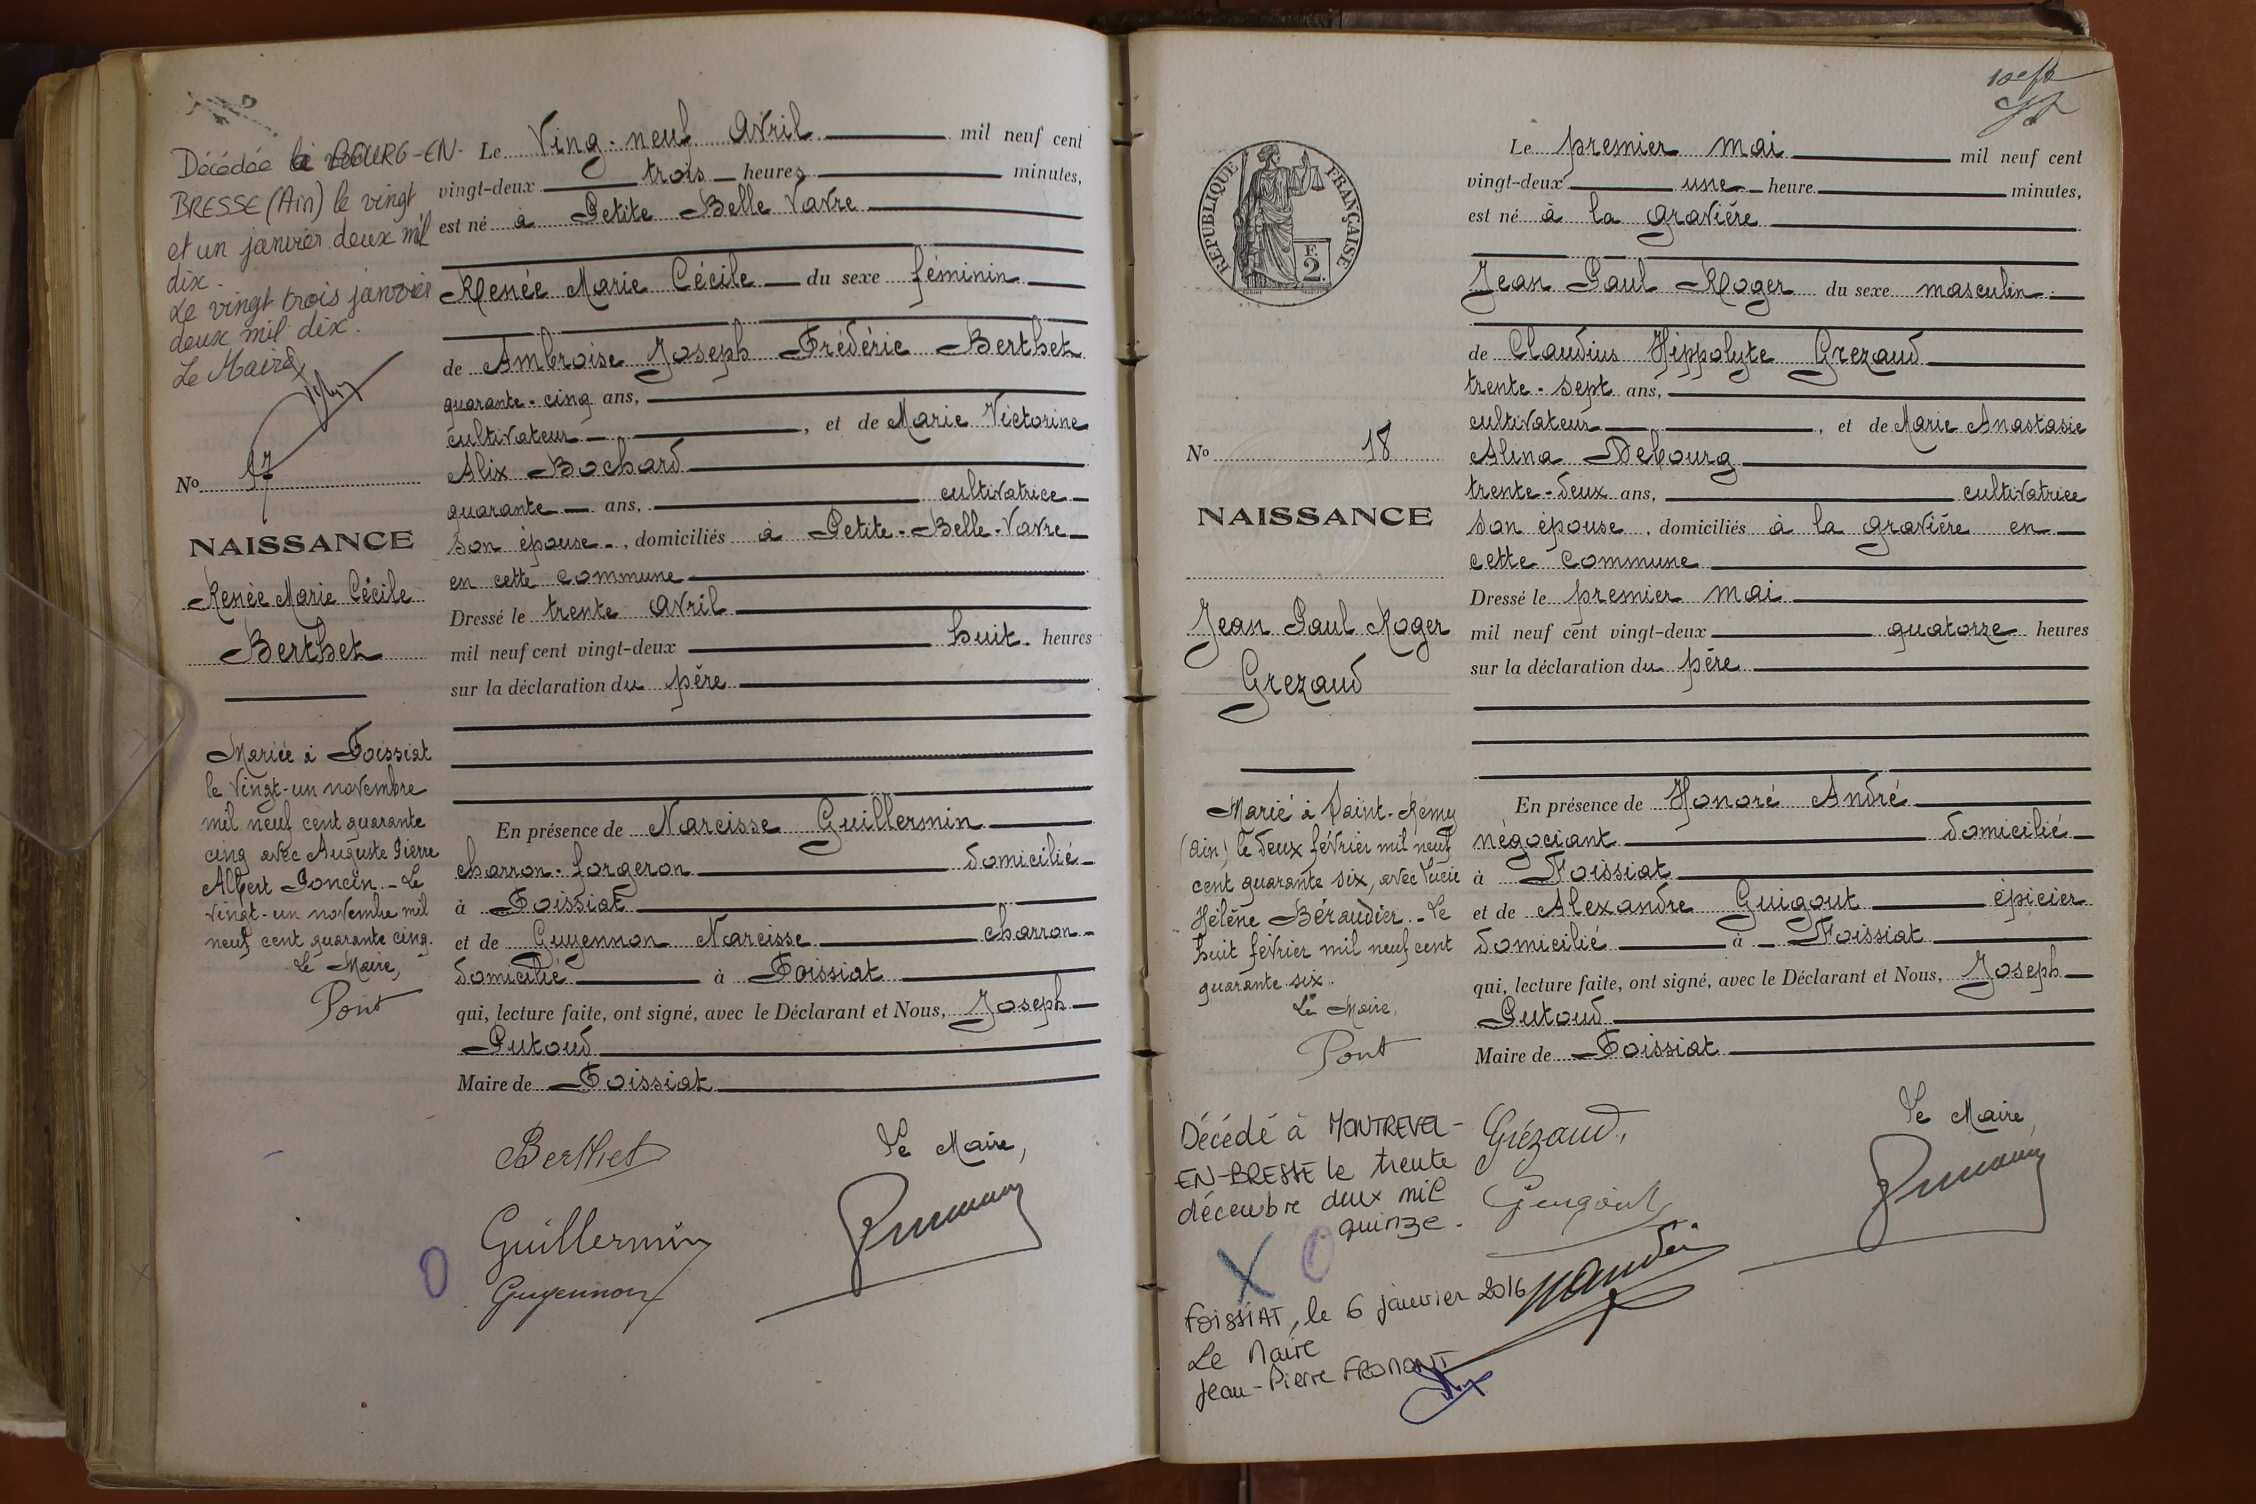 Décédée à BOURG-EN-
BRESSE (Ain) le vingt
et un janvier deux mil
dix.
Le vingt trois janvier
deux mil dix.
Le Maire,
No 17
NAISSANCE
Renée Marie Cécile
Berthet
Mariée à Foissiat
le vingt-un novembre
mil neuf cent quarante
cinq avec Auguste Pierre
Albert Poncin. - Le
vingt-un novembre mil
neuf cent quarante cinq.
Le Maire,
Pont
Le Ving-neuf Avril mil neuf cent
vingt-deux trois heures minutes,
est né à Petite Belle Vavre
Renée Marie Cécile du sexe féminin
de Ambroise Joseph Frédéric Berthet
quarante-cinq ans,
cultivateur, et de Marie Victorine
Alix Bochard
quarante ans, cultivatrice
son épouse, domiciliés à Petite-Belle-Vavre
en cette commune
Dressé le trente avril
mil neuf cent vingt-deux huit heures
sur la déclaration du père
En présence de Narcisse Guillermin
charron-forgeron domicilié
à Foissiat
et de Guyennon Narcisse charron
domicilié à Foissiat
qui, lecture faite, ont signé, avec le Déclarant et Nous, Joseph
Putoud
Maire de Foissiat
Berthet
Le Maire,
Guillermin
Guyennon
RÉPUBLIQUE FRANÇAISE
F.
2
No 18
NAISSANCE
Jean Paul Roger
Grezaud
Marié à Saint-Rémy
(Ain) le deux février mil neuf
cent quarante six, avec Lucie
Hélène Béraudier. - Le
huit février mil neuf cent
quarante six.
Le Maire,
Pont
Décédé à MONTREVEL-
EN-BRESSE le trente
décembre deux mil
quinze.
FOISSIAT, le 6 janvier 2016
Le Maire
Jean-Pierre FROMONT
Le premier mai mil neuf cent
vingt-deux une heure minutes,
est né à la gravière
Jean Paul Roger du sexe masculin
de Claudius Hippolyte Grezaud
trente-sept ans,
cultivateur, et de Marie Anastasie
Alina Debourg
trente-deux ans, cultivatrice
son épouse, domiciliés à la gravière en
cette commune
Dressé le premier mai
mil neuf cent vingt-deux quatorze heures
sur la déclaration du père
En présence de Honoré André
négociant domicilié
à Foissiat
et de Alexandre Guigout épicier
domicilié à Foissiat
qui, lecture faite, ont signé, avec le Déclarant et Nous, Joseph
Putoud
Maire de Foissiat
Grézaud,
Le Maire,